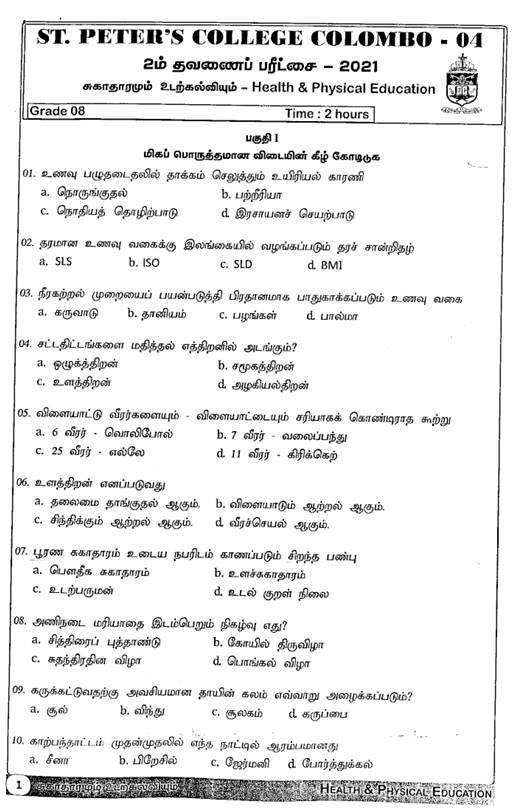 ST. PETER'S COLLEGE COLOMBO - 04
2ம் தவணைப் பரீட்சை – 2021
சுகாதாரமும் உடற்கல்வியும் – Health & Physical Education
Grade 08 Time : 2 hours
பகுதி I
மிகப் பொருத்தமான விடையின் கீழ் கோடிடுக
01. உணவு பழுதடைதலில் தாக்கம் செலுத்தும் உயிரியல் காரணி
a. நொருங்குதல் b. பற்றீரியா
c. நொதியத் தொழிற்பாடு d. இரசாயனச் செயற்பாடு
02. தரமான உணவு வகைக்கு இலங்கையில் வழங்கப்படும் தரச் சான்றிதழ்
a. SLS b. ISO c. SLD d. BMI
03. நீரகற்றல் முறையைப் பயன்படுத்தி பிரதானமாக பாதுகாக்கப்படும் உணவு வகை
a. கருவாடு b. தானியம் c. பழங்கள் d. பால்மா
04. சட்டதிட்டங்களை மதித்தல் எத்திறனில் அடங்கும்?
a. ஒழுக்த்திறன் b. சமூகத்திறன்
c. உளத்திறன் d. அழகியல்திறன்
05. விளையாட்டு வீரர்களையும் - விளையாட்டையும் சரியாகக் கொண்டிராத கூற்று
a. 6 வீரர் - வொலிபோல் b. 7 வீரர் - வலைப்பந்து
c. 25 வீரர் - எல்லே d. 11 வீரர் - கிரிக்கெற்
06. உளத்திறன் எனப்படுவது
a. தலைமை தாங்குதல் ஆகும். b. விளையாடும் ஆற்றல் ஆகும்.
c. சிந்திக்கும் ஆற்றல் ஆகும். d. வீரச்செயல் ஆகும்.
07. பூரண சுகாதாரம் உடைய நபரிடம் காணப்படும் சிறந்த பண்பு
a. பௌதீக சுகாதாரம் b. உளச்சுகாதாரம்
c. உடற்பருமன் d. உடல் குறள் நிலை
08. அணிநடை மரியாதை இடம்பெறும் நிகழ்வு எது?
a. சித்திரைப் புத்தாண்டு b. கோயில் திருவிழா
c. சுதந்திரதின விழா d. பொங்கல் விழா
09. கருக்கட்டுவதற்கு அவசியமான தாயின் கலம் எவ்வாறு அழைக்கப்படும்?
a. சூல் b. விந்து c. சூலகம் d. கருப்பை
10. காற்பந்தாட்டம் முதன்முதலில் எந்த நாட்டில் ஆரம்பமானது
a. சீனா b. பிறேசில் c. ஜேர்மனி d. போர்த்துக்கல்
1 சுகாதாரமும் உடற்கல்வியும் HEALTH & PHYSICAL EDUCATION